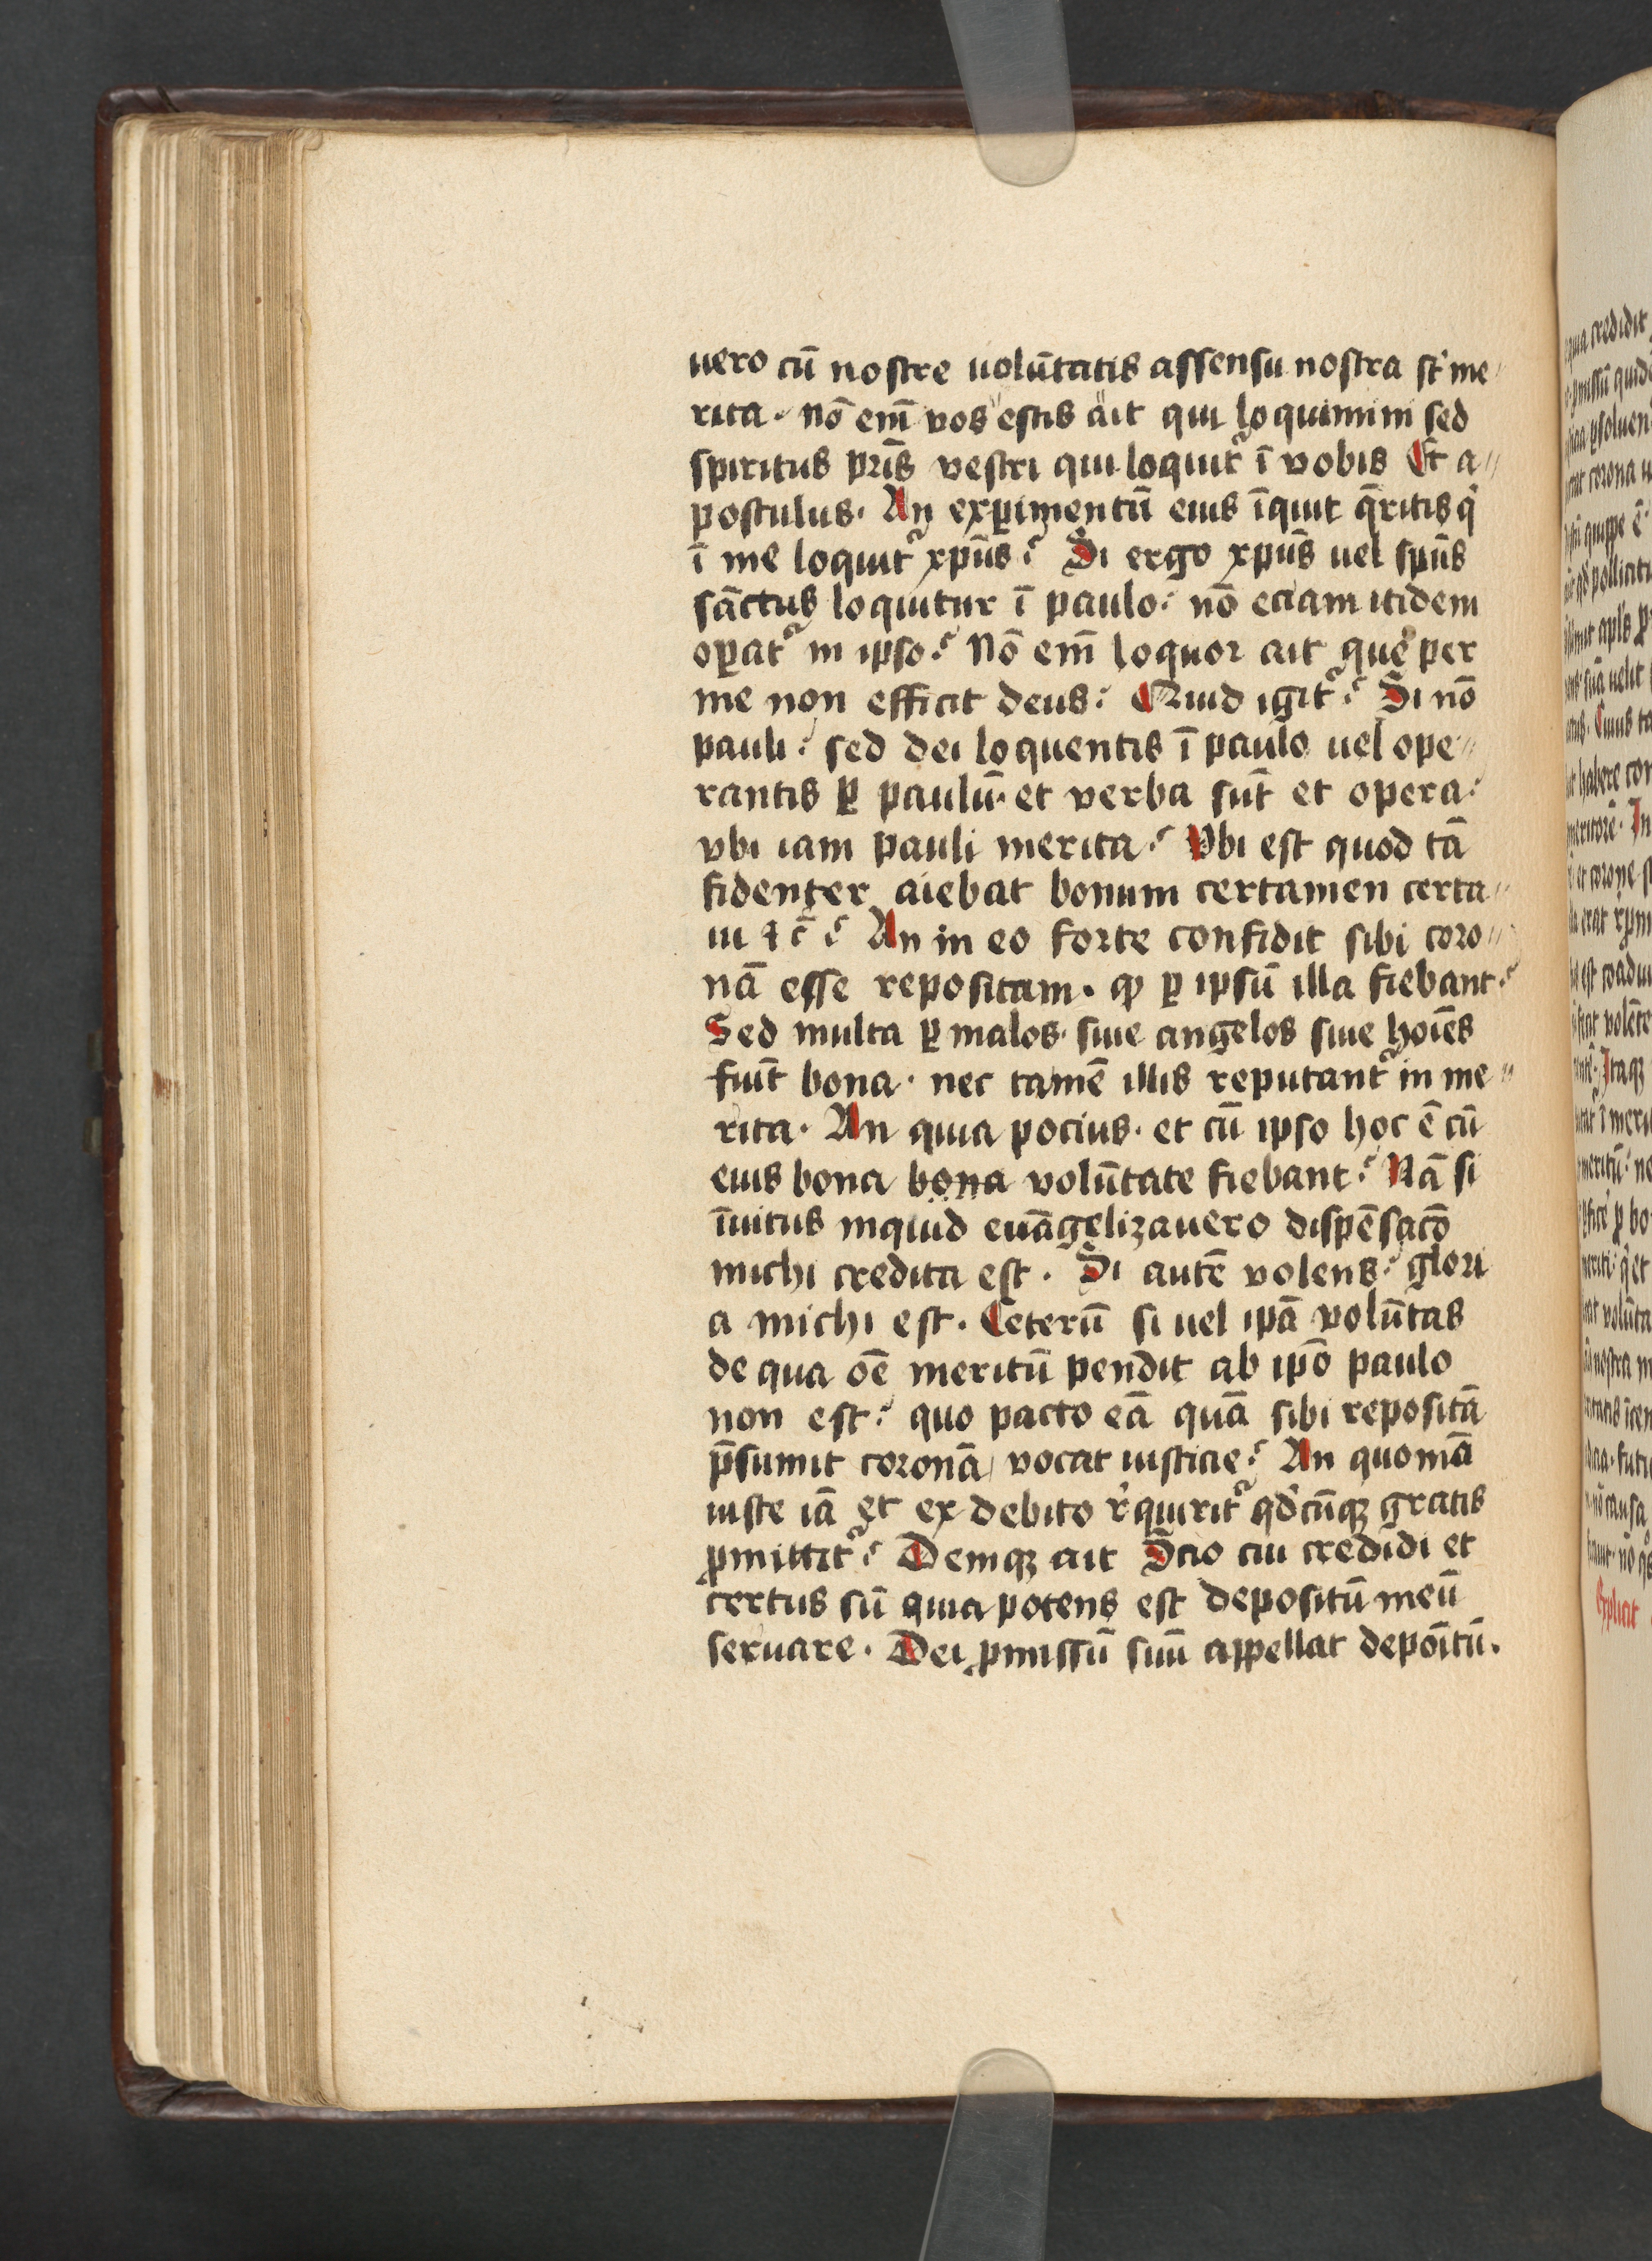 uero cū nostre uolūtatis assensu nostra st̄ me
rita. nō em̄ vos estis ait qui loquimini sed
spiritus pr̄is vestri qui loquit᷑ ī vobis Et a
postulus. An exꝑimentū eius īquit q̄ritis qͥ
ī me loquit᷑ xp̄us? Si ergo xp̄us uel sp̄us
sāctus loquitur ī paulo. nō eciam itidem
oꝑat᷑ in ipso? Nō em̄ loquor ait que per
me non efficit deus. Quid igit᷑? Si nō
pauli. sed dei loquentis ī paulo uel ope
rantis ꝑ paulū. et verba sūt et opera.
vbi iam pauli merita? Vbi est quod tā
fidenter aiebat bonum certamen certa
ui ⁊c̄? An in eo forte confidit sibi coro
nā esse repositam. ꝙ ꝑ ipsū illa fiebant?
Sed multa ꝑ malos. siue angelos siue hoīes
fiūt bona. nec tamē illis reputant᷑ in me
rita. An quia pocius. et cū ipso hoc ē cū
eius bona bona volūtate fiebant? Nā si
īuitus inquid euāgelizauero dispēsacō
michi credita est. Si autē volens. glori
a michi est. Ceterū si uel ip̄a volūtas
de qua oē meritū pendit ab ip̄o paulo
non est. quo pacto eā quā sibi repositā
p̄sumit coronā vocat iusticie? An quoniā
iuste iā et ex debito rͥquirit᷑ qd̓cūqꝫ gratis
ꝓmittit᷑? Deniqꝫ ait Scio cui credidi et
certus sū quia potens est depositū meū
seruare. Dei ꝓmissū suū appellat depoītū.